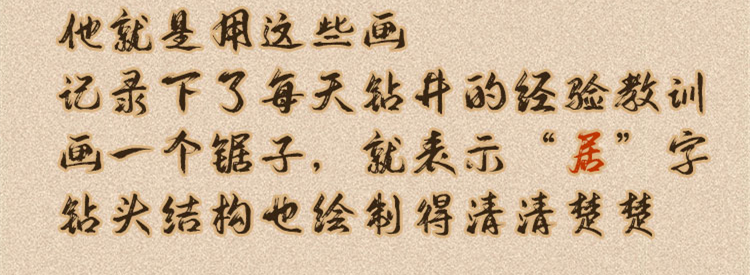 他就是用这些画
记录下了每天钻井的经验教训
画一个锯子，就表示“居”字
钻头结构也绘制得清清楚楚